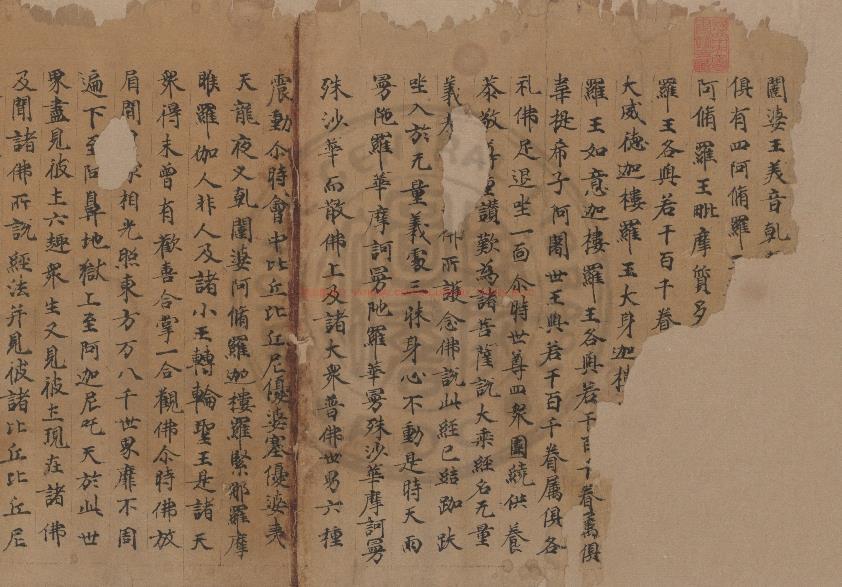 闥婆王美音乹
俱有四阿脩羅
阿脩羅王毗摩質多
羅王各與若千百千眷
大威德迦樓羅王大身迦樓
羅王如意迦樓羅王各與若干百千眷屬俱
韋提希子阿闍世王與若干百千眷属俱各
礼佛足退坐一面尒時世尊四衆圍繞供養
恭敬尊重讚歎為諸菩薩說大乘經名无量
義 佛所護念佛說此經已結跏趺
坐入於无量義處三昧身心不動是時天雨
曼陁羅華摩訶曼陁羅華曼殊沙華摩訶曼
殊沙華而散佛上及諸大衆普佛世界六種
震動尒時會中比丘比丘尼優婆塞優婆夷
天龍夜叉乹闥婆阿脩羅迦樓羅緊那羅摩
睺羅伽人非人及諸小王轉輪聖王是諸大
衆得未曾有歡喜合掌一合觀佛尒時佛放
眉間 相光照東方万八千世界靡不周
遍下至阿鼻地獄上至阿迦尼吒天於此世
界盡見彼土六趣衆生又見彼土現在諸佛
及聞諸佛所說經法并見彼諸比丘比丘尼